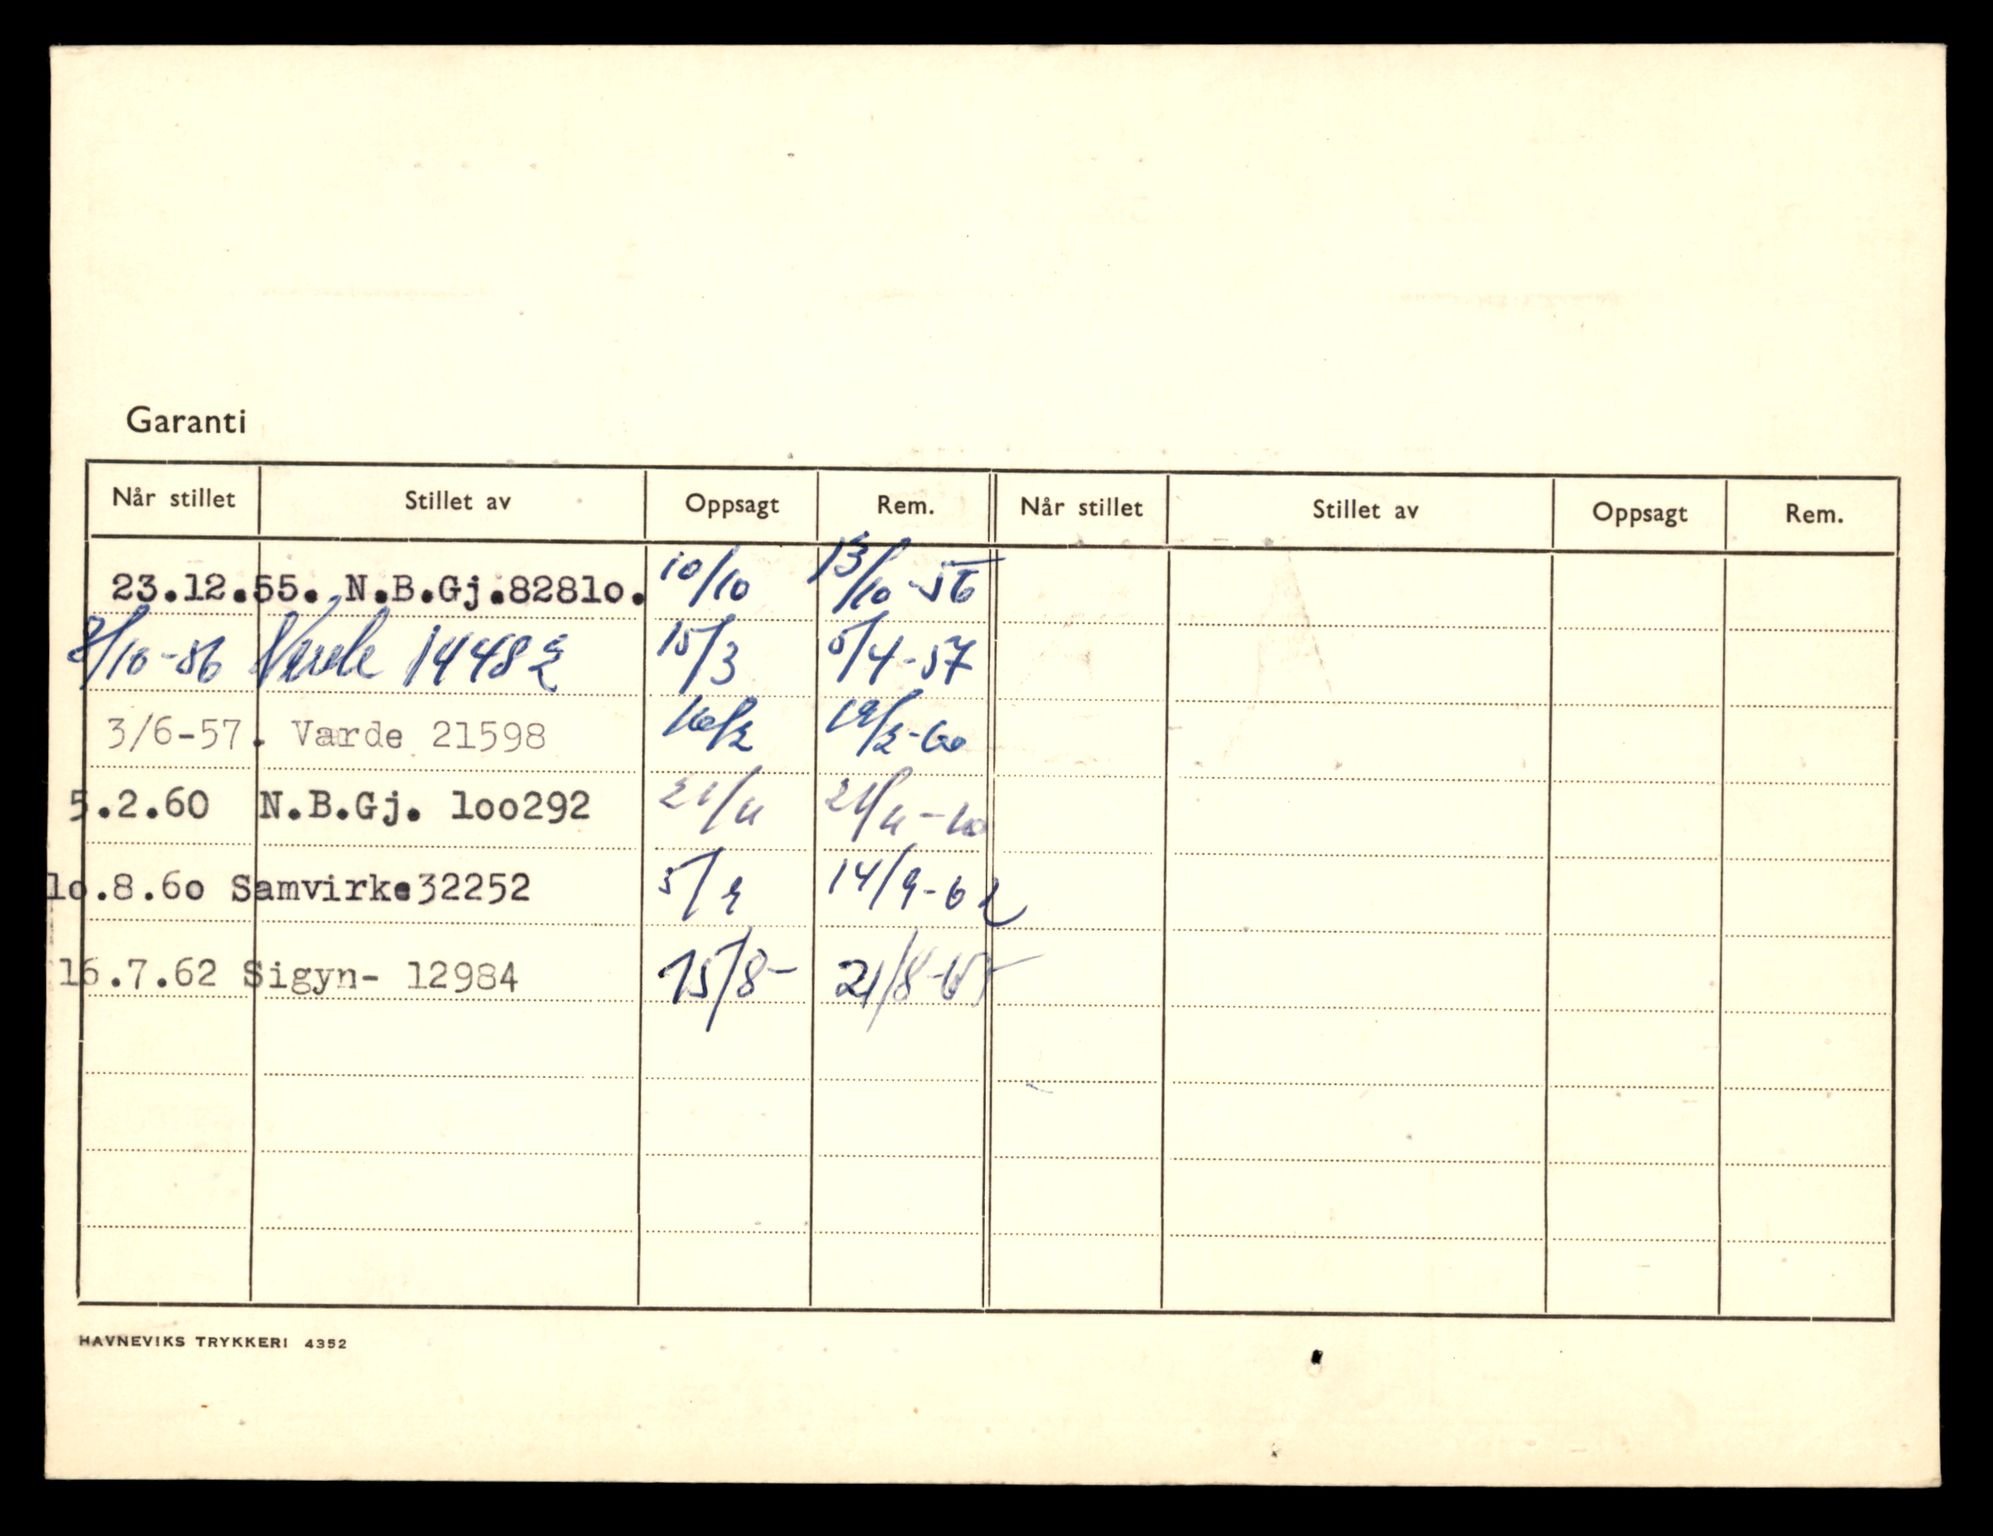 Garanti
Når stillet Stillet av Oppsagt Rem. Når stillet Stillet av Oppsagt Rem.
23.12.55. N.B.Gj.8281o. 10/10 13/10-56
8/10-56 Varde 14482 15/3 5/4-57
3/6-57. Varde 21598 16/2 19/2-60
5.2.60 N.B.Gj. 1oo292 21/11 21/11-60
1o.8.6o Samvirke32252 5/9 14/9-62
16.7.62 Sigyn- 12984 15/8- 21/8-65
HAVNEVIKS TRYKKERI 4352